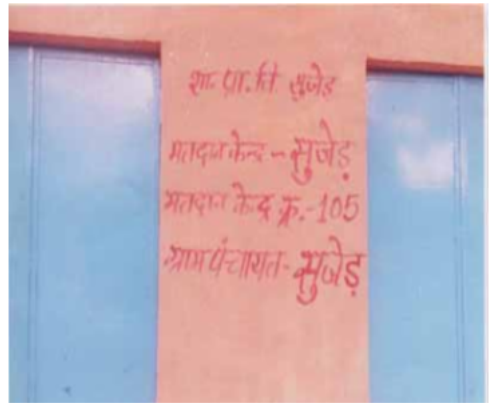 शा. प्रा. वि. सुजेड़
मतदान केन्द्र - सुजेड़
मतदान केन्द्र क्र.-105
ग्राम पंचायत- सुजेड़